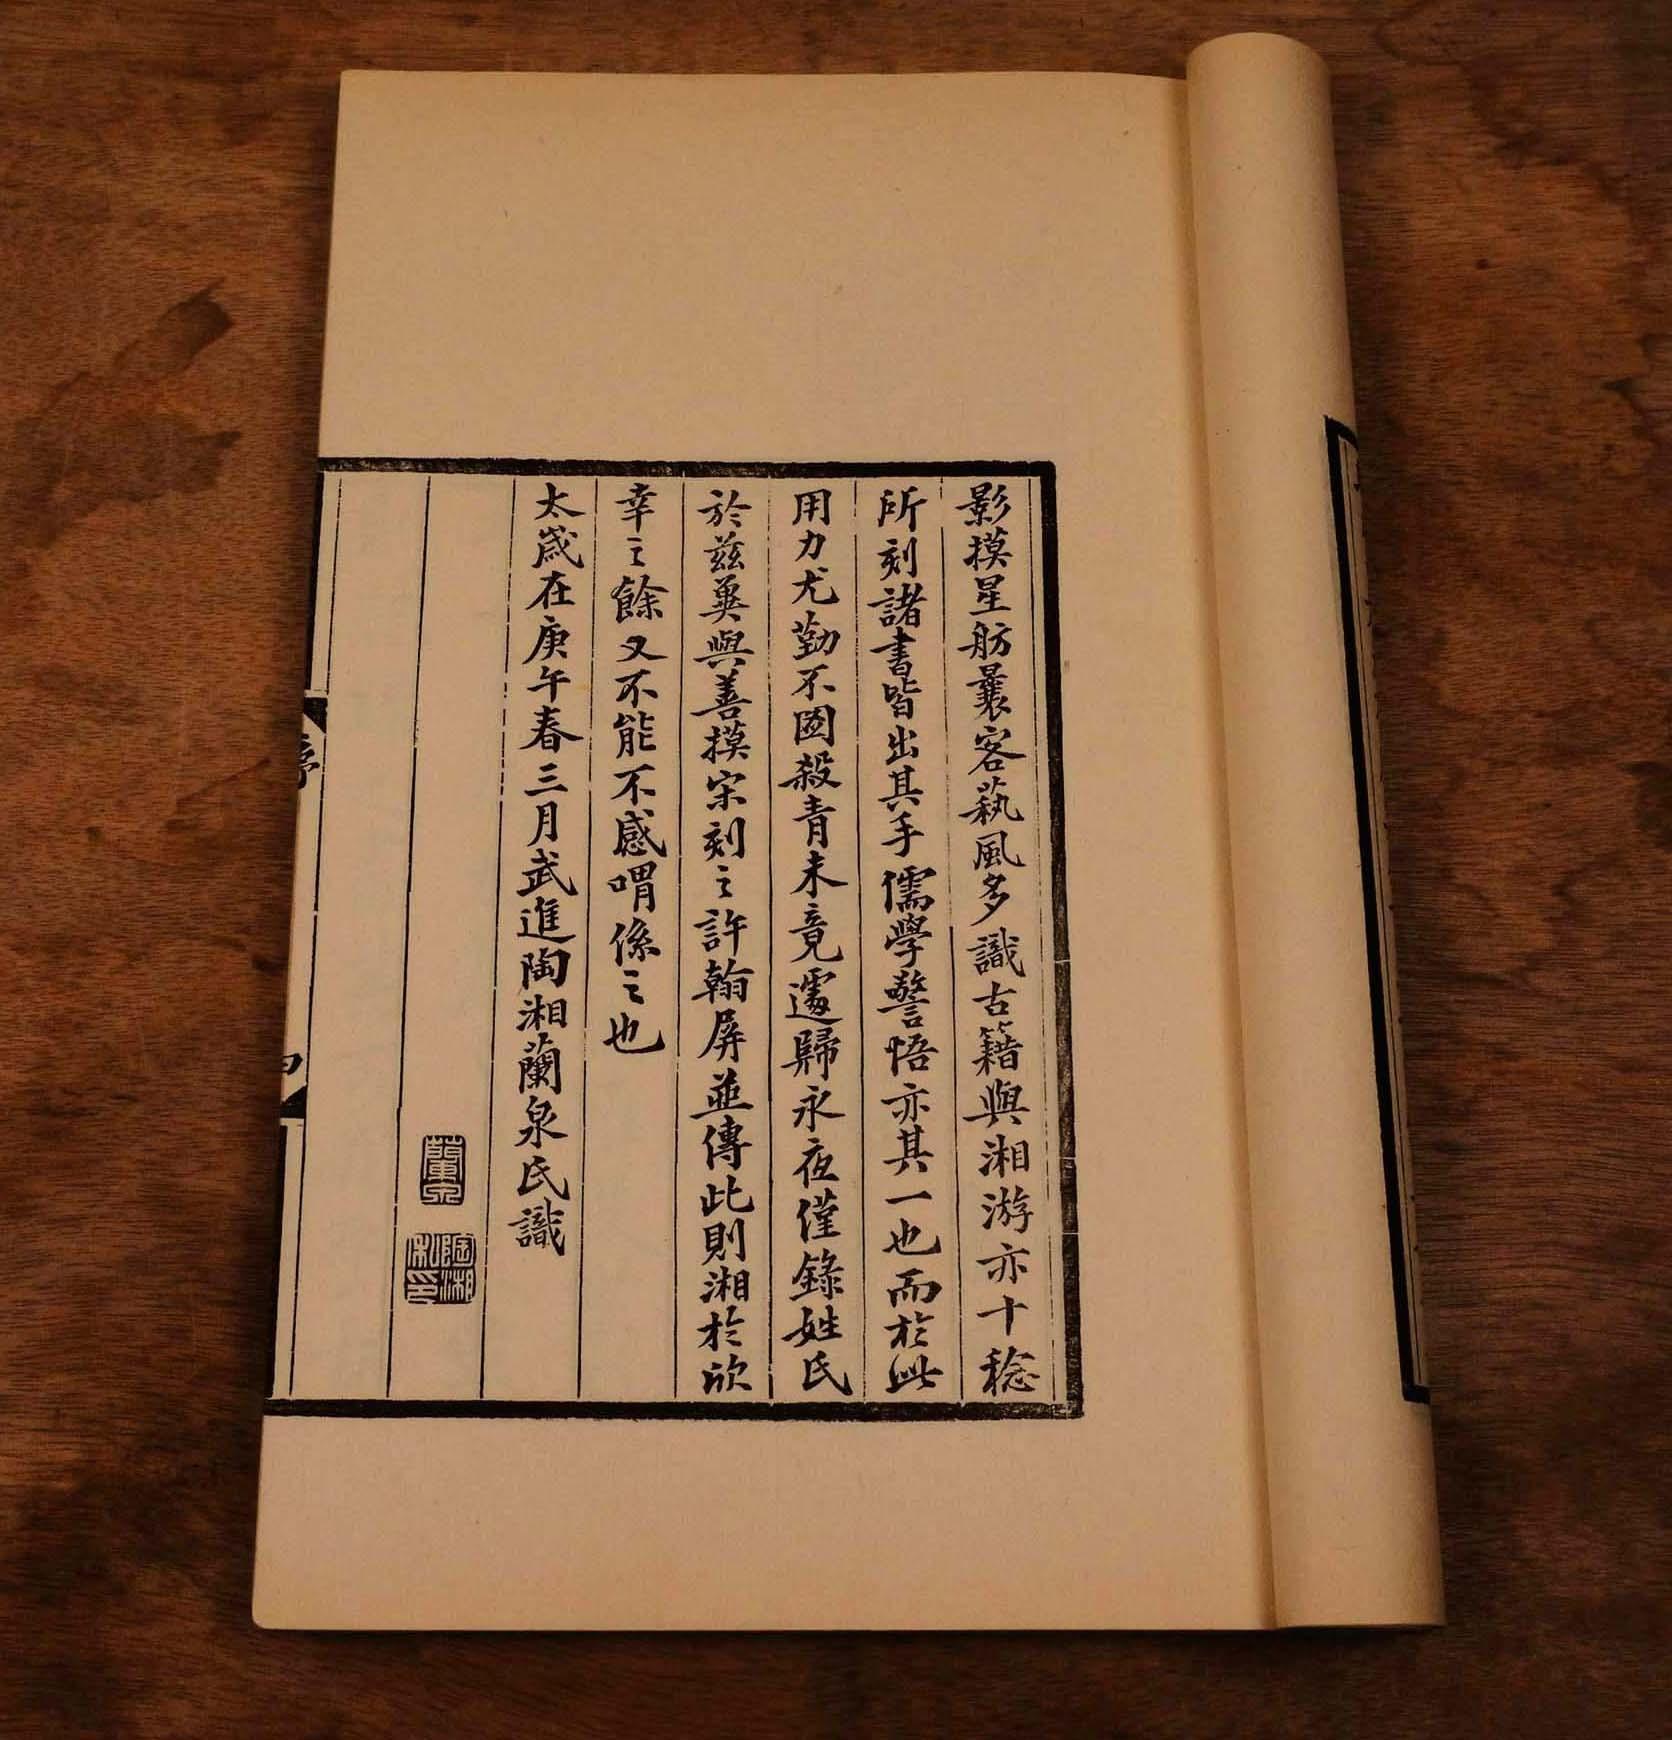 影摸星舫曩客藝風多識古籍與湘游亦十稔
所刻諸書皆出其手儒學警悟亦其一也而於此
用力尤勤不圖殺青未竟遽歸永夜僅錄姓氏
於茲兾與善摸宋刻之許翰屏並傳此則湘於欣
幸之餘又不能不感喟係之也
太歲在庚午春三月武進陶湘蘭泉氏識
蘭泉
陶湘私印
序
四